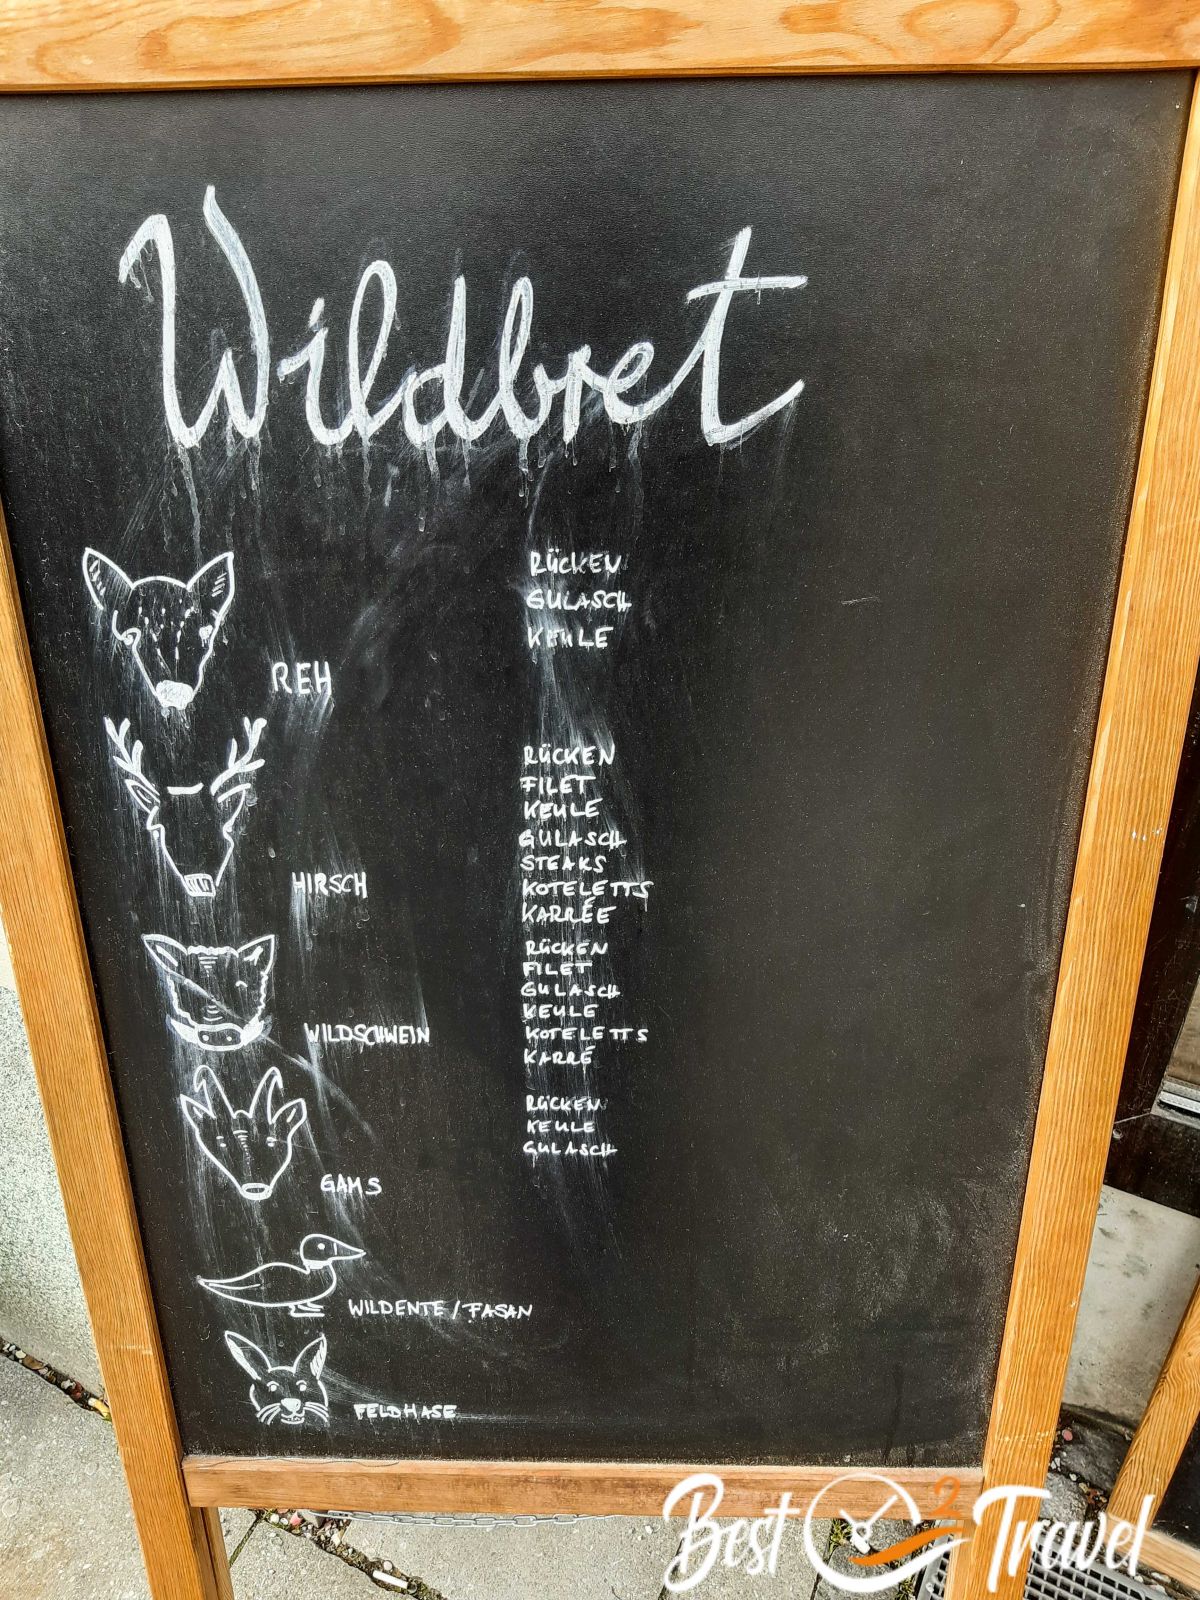 Wildbret
RÜCKEN
GULASCH
KEULE
REH
RÜCKEN
FILET
KEULE
GULASCH
STEAKS
KOTELETTS
KARRÉE
HIRSCH
RÜCKEN
FILET
GULASCH
KEULE
KOTELETTS
KARRÉ
WILDSCHWEIN
RÜCKEN
KEULE
GULASCH
GAMS
WILDENTE / FASAN
FELDHASE
Best 2 Travel